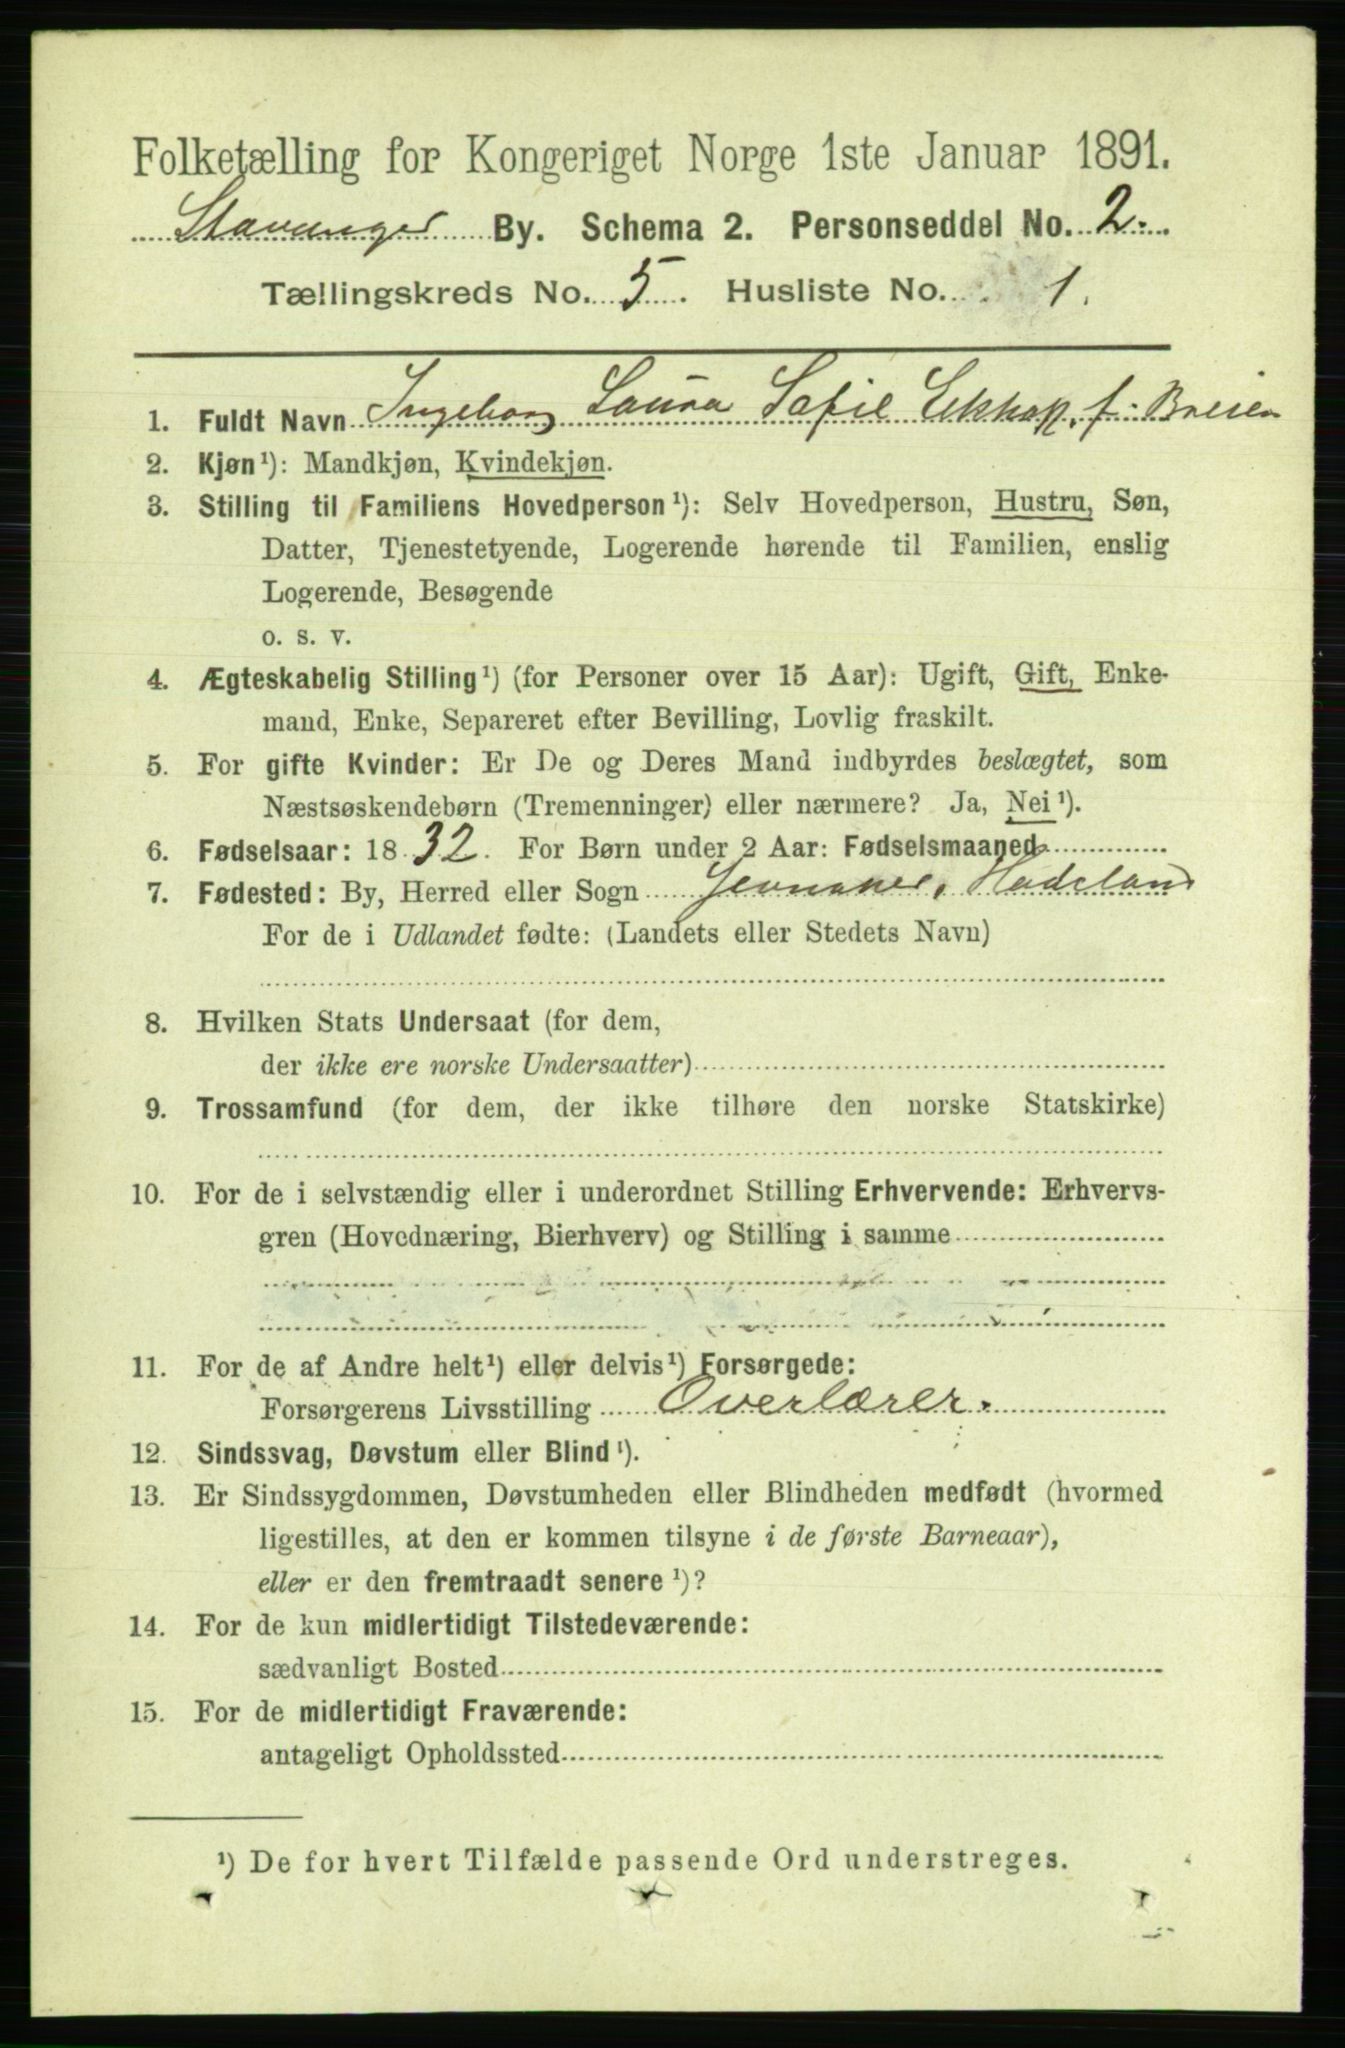 Folketælling for Kongeriget Norge 1ste Januar 1891.
Stavanger By. Schema 2. Personseddel No. 2.
Tællingskreds No. 5. Husliste No. 1.
1. Fuldt Navn Ingeborg Laura Sofie f. Breien
2. Kjøn¹): Mandkjøn, Kvindekjøn.
3. Stilling til Familiens Hovedperson¹): Selv Hovedperson, Hustru, Søn,
Datter, Tjenestetyende, Logerende hørende til Familien, enslig
Logerende, Besøgende
o. s. v.
4. Ægteskabelig Stilling¹) (for Personer over 15 Aar): Ugift, Gift, Enke-
mand, Enke, Separeret efter Bevilling, Lovlig fraskilt.
5. For gifte Kvinder: Er De og Deres Mand indbyrdes beslægtet, som
Næstsøskendebørn (Tremenninger) eller nærmere? Ja, Nei¹).
6. Fødselsaar: 1832. For Børn under 2 Aar: Fødselsmaaned
7. Fødested: By, Herred eller Sogn Jevnaker, Hadeland
For de i Udlandet fødte: (Landets eller Stedets Navn)
8. Hvilken Stats Undersaat (for dem,
der ikke ere norske Undersaatter)
9. Trossamfund (for dem, der ikke tilhøre den norske Statskirke)
10. For de i selvstændig eller i underordnet Stilling Erhvervende: Erhvervs-
gren (Hovednæring, Bierhverv) og Stilling i samme
11. For de af Andre helt¹) eller delvis¹) Forsørgede:
Forsørgerens Livsstilling Overlærer.
12. Sindssvag, Døvstum eller Blind¹).
13. Er Sindssygdommen, Døvstumheden eller Blindheden medfødt (hvormed
ligestilles, at den er kommen tilsyne i de første Barneaar),
eller er den fremtraadt senere¹)?
14. For de kun midlertidigt Tilstedeværende:
sædvanligt Bosted
15. For de midlertidigt Fraværende:
antageligt Opholdssted
¹) De for hvert Tilfælde passende Ord understreges.